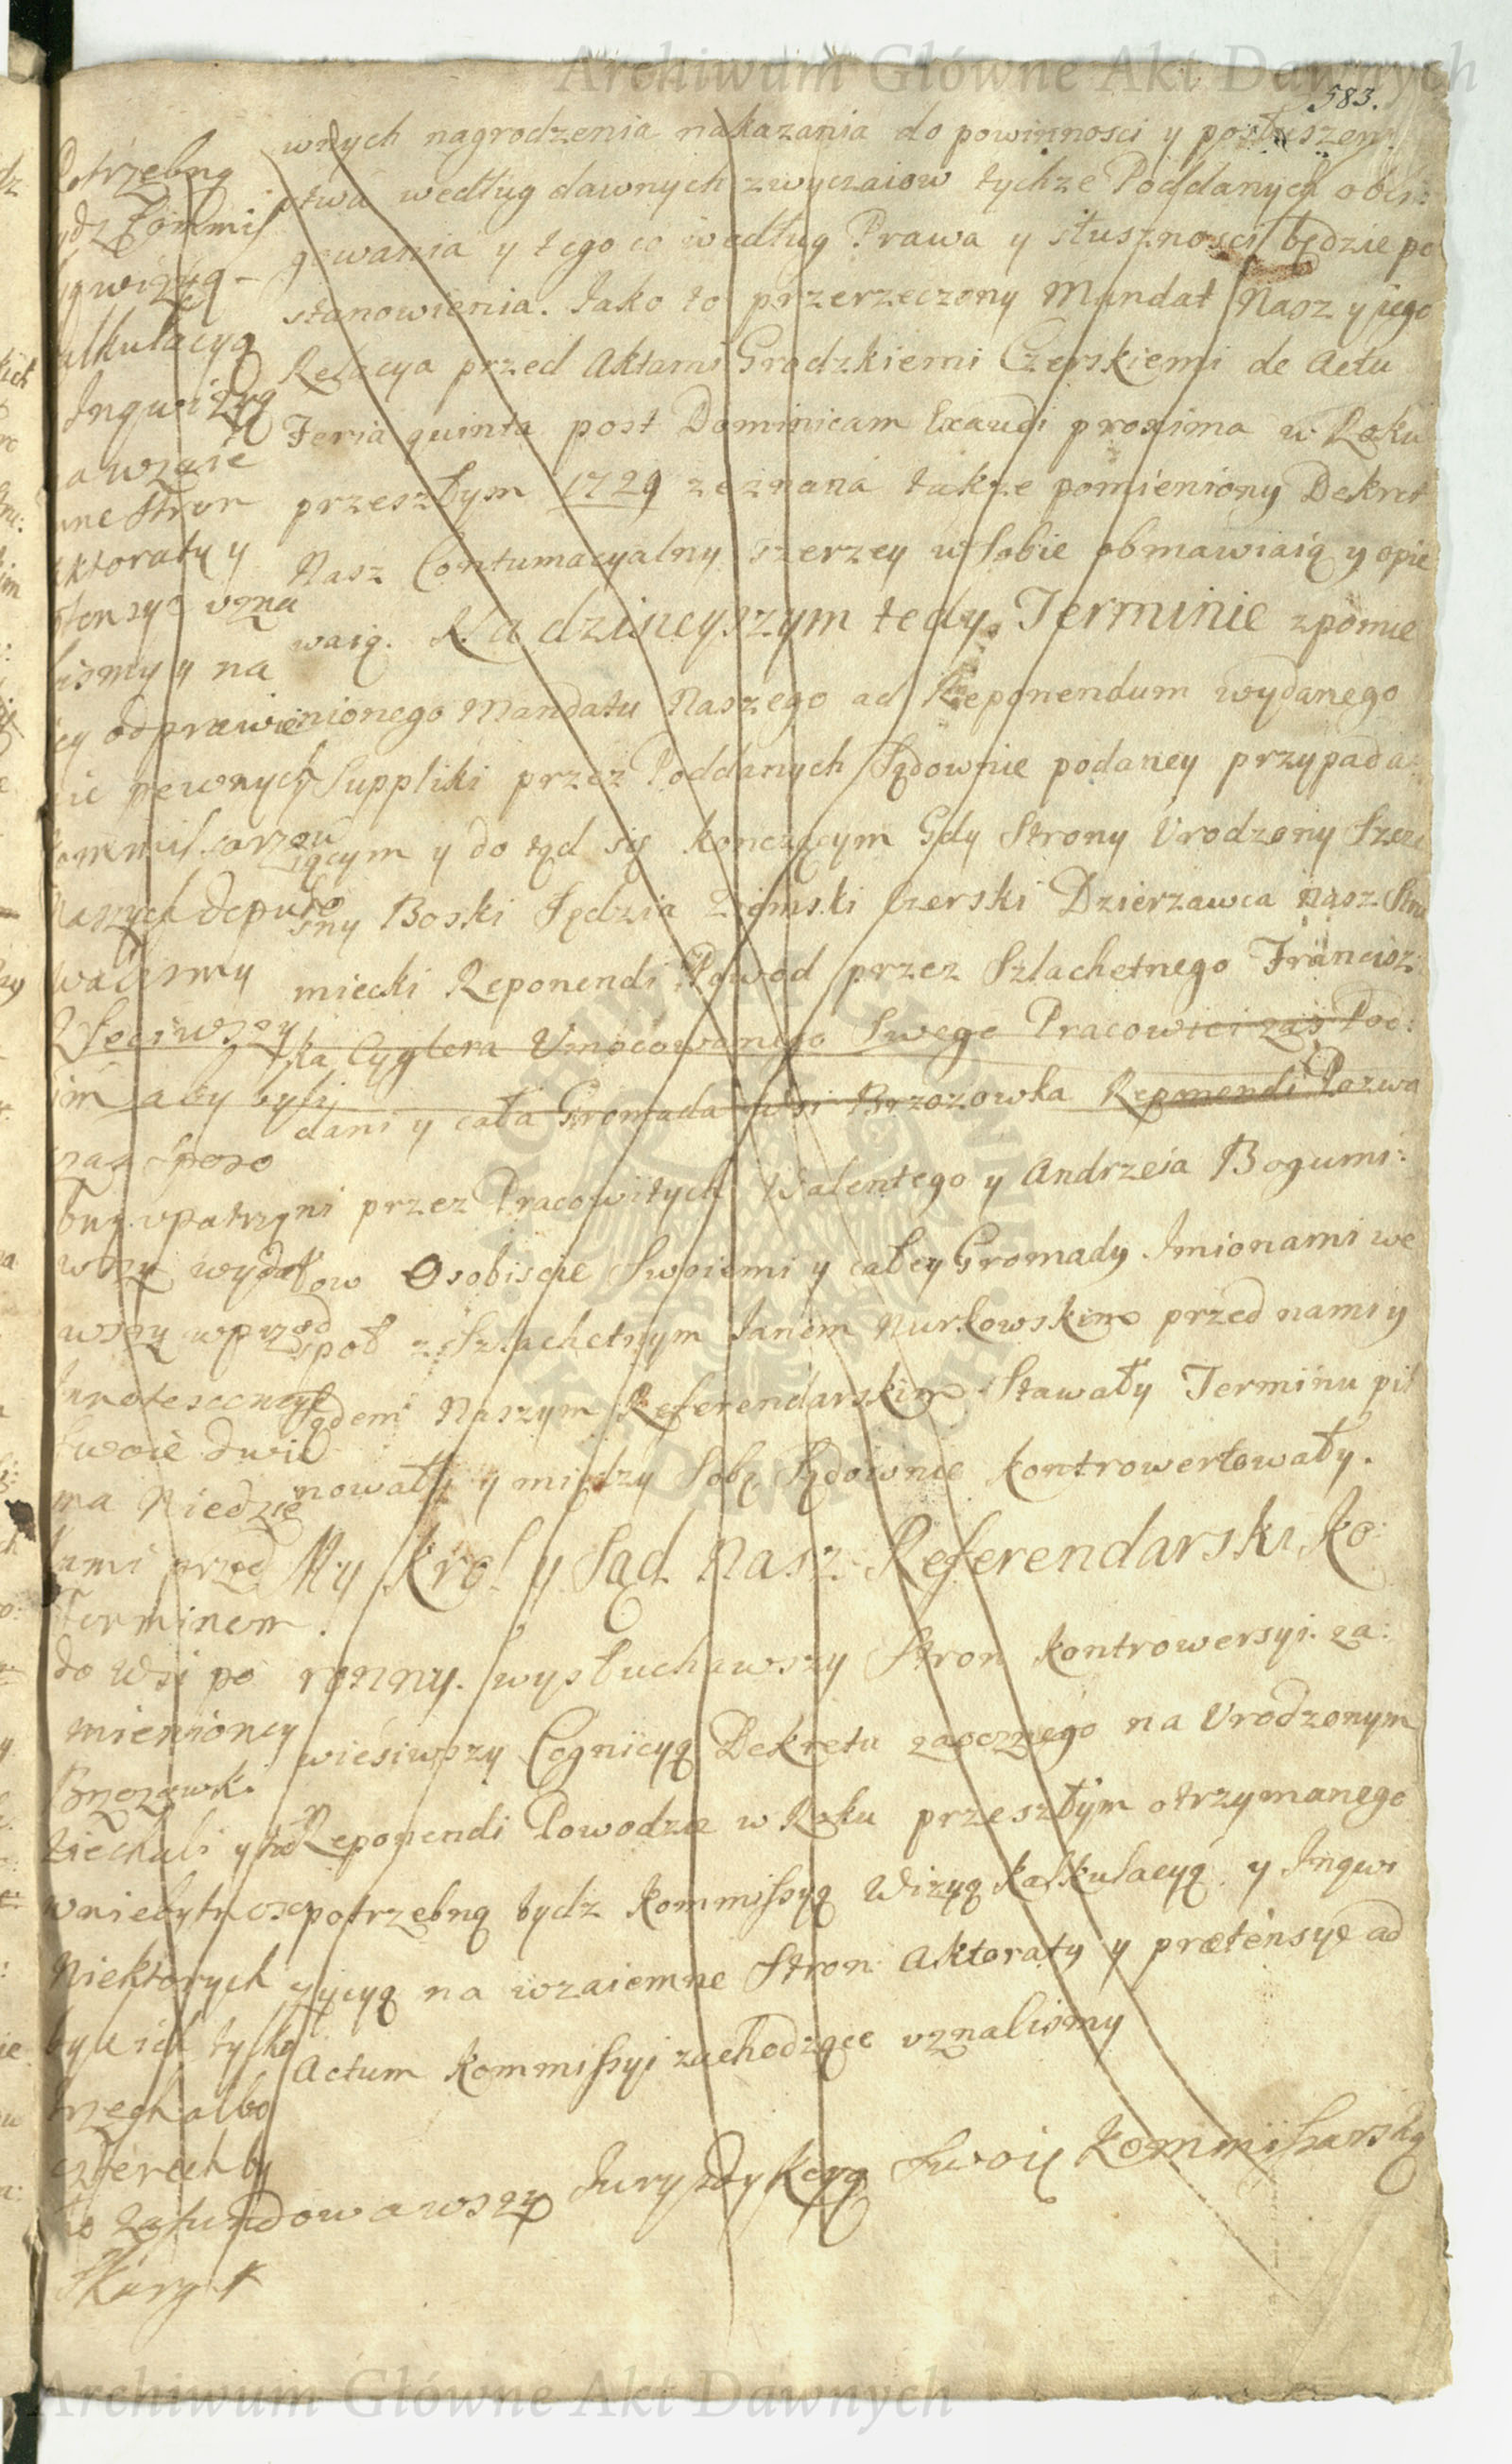 Archiwum Główne Akt Dawnych
583.
wnych nagrodzenia nakazania do powinnosci y posłuszen:
stwa według dawnych zwyczaiow tychze Poddanych obli:
gowania y tego co według Prawa y słusznosci będzie po
stanowienia. Jako to przerzeczony Mandat Nasz y jego
Relacya przed Aktami Grodzkiemi Czerskiemi de Actu
Feria quinta post Dominicam Exaudi proxima w Roku
przeszłym 1729 zeznana także pomieniony Dekret
Nasz Contumacyalny szerzey w Sobie obmawiaią y opie
waią. Na dzisieyszym tedy Terminie zpomie
nionego Mandatu Naszego ad Reponendum wydanego
Suppliki przez Poddanych Sądownie podaney przypada:
iącym y do tąd się konczącym Gdy Strony Urodzony
sny Boski Sędzia Ziemski Czerski Dzierzawca Nasz
miecki Reponendi Powod przez Szlachetnego Francisz:
ka Cyglera Umocowanego Swego Pracowici zas Pod:
dani y cała Gromada Wsi Brzozowka Reponendi Pozwa
ni przez Pracowitych Walentego y Andrzeia Bogumi:
łow Osobiscie Swoiemi y całey Gromady Imionami we
społ z Szlachetnym Janem Nurkowskim przed nami y
Sądem Naszym Referendarskim Stawały Terminu pil
nowały y między Sobą Sądownie kontrowertowały.
My Krol y Sąd Nasz Referendarski Ko:
ronny. wysłuchawszy Stron kontrowersyi. za:
wiesiwszy Cognicyą Dekretu zaocznego na Urodzonym
Reponendi Powodzie w Roku przeszłym otrzymanego
potrzebną bydz Kommissyą Wizyą kalkulacyą y Inqwi
zycyą na wzaiemne Stron Aktoraty y prætensye ad
Actum Kommissyi zachodzące uznalismy
potrzebną
ydz Kommiss
yą wizyą
alkulacyą
Inqwizyą
a wzaie
mne Stron
aktoraty y
tensye uzna
lismy y na
ey odprawie
nie pewnych
ommissarzow
Naszych deputo
walismy
im aby byli
sposo
upatrzy
wszy wydał
wszy wprzod
Innotescencye
Swoie dwie
ma Niedzie
lami przed
Terminem.
do Wsi po
mienioney
Brzozowki
ziechali y
w niebytnosci
Niektorych
byle ich tylko
trzech albo
czterech by
ło zafundowawszy Juryzdykcyą Swoię Kommissarską
Skargi
Archiwum Główne Akt Dawnych